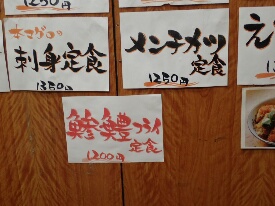 本マグロの
刺身定食
1350円
メンチカツ
定食
1250円
鯵鱧フライ
定食
1200円